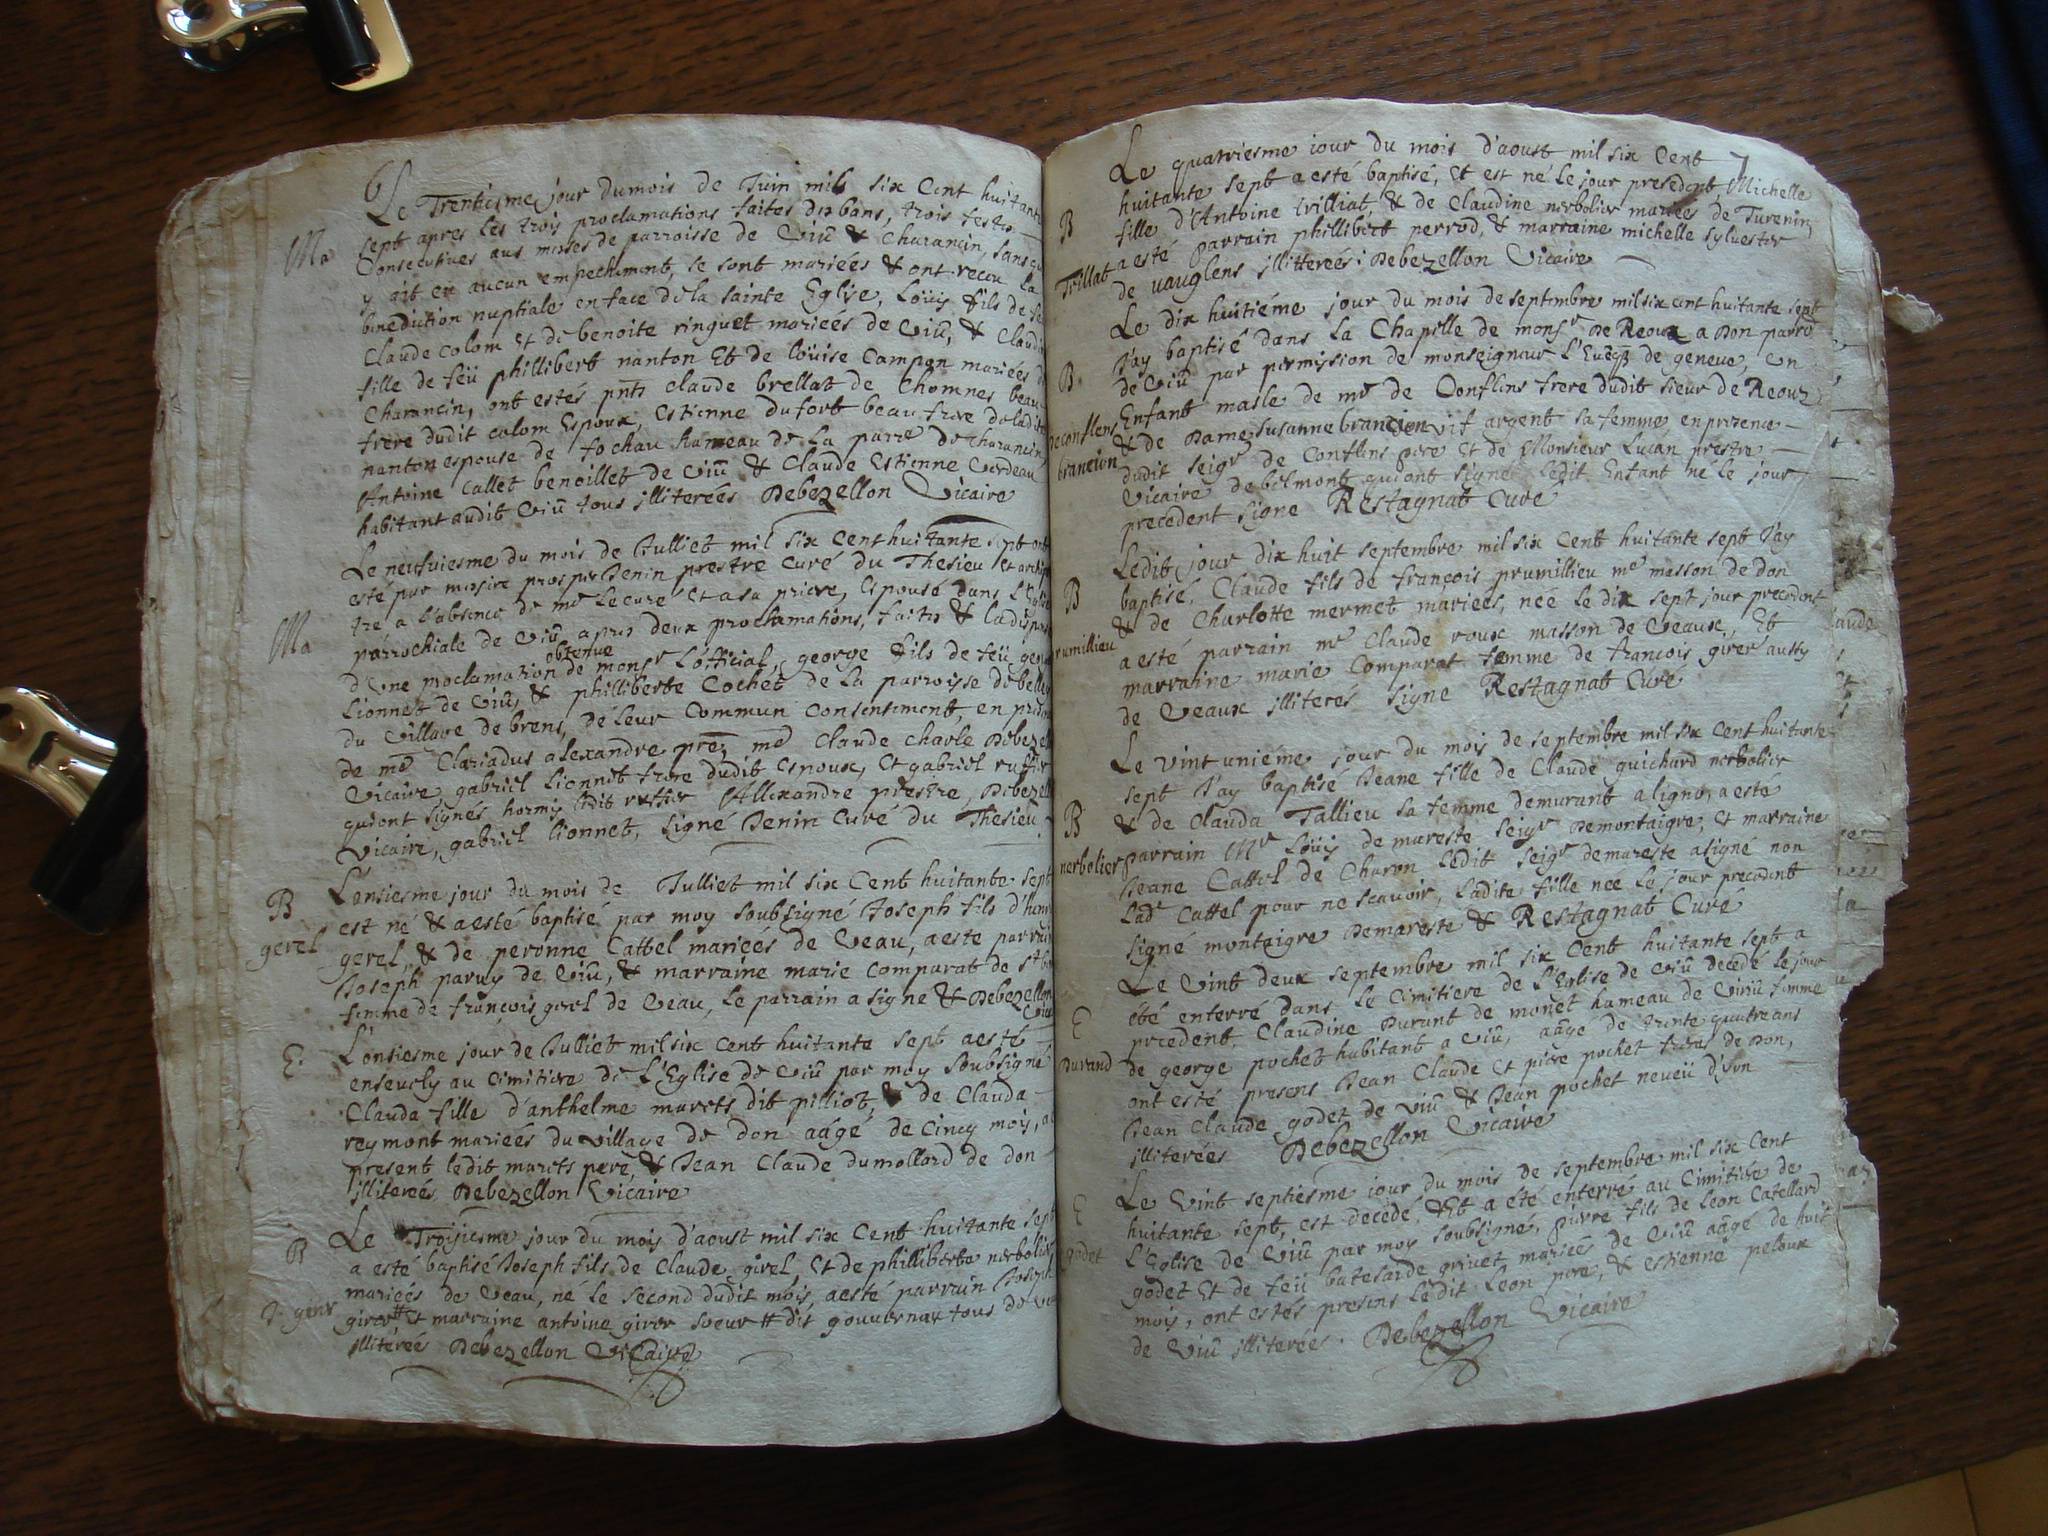 6
Le Trentiesme jour du mois de Juin mil six Cent huitante
Ma
sept apres les trois proclamations faites des bans, trois festes
Consecutives aus messes de parroisse de Viū & Charancin, sans
y ait eu aucun empechement, se sont mariées & ont receu La
benediction nuptiale en face de la sainte Eglise, Loüis fils de
Claude Colom et de benoite ringuet mariées de Viū, &
fille de feü phillibert nanton Et de loüise Campan mariées
Charancin, ont estés pnts claude brellat de Chomnes beau
frere dudit colom Espoux, Estienne dufort beau frere
nanton espouse de fochau hameau de La parre de Charancin
Antoine Callet benoillet de Viū & Claude Estienne Verdeau
habitant audit Viū tous illiterées Debezellon Vicaire
Le neufviesme du mois de Julliet mil six Cent huitante sept ont
esté par messire prosper Jenin prestre Curé du Thesieu et
tre a l'absence de mre Le curé Et a sa priere, Espousé dans L'
Ma
parrochiale de Viū apres deux proclamations, faites &
d'Une proclamation obtenue de monsr L'official, george fils de feü
Lionnet de Viū, & philliberte Cochet de La parroisse de
du Village de brens, de Leur Commun Consentiment, en
de mre Clariadus alexandre pre, me Claude Charle
Vicaire gabriel Lionnet frere dudit Espoux, Et gabriel ruffier
quiont signés hormis ledit ruffier Allexandre prestre,
Vicaire, gabriel lionnet, signé Jenin Curé du Thesieu
B
gerel
L'onsiesme jour du mois de Julliet mil six Cent huitante sept
est né & a esté baptisé par moy soubsigné Joseph fils
gerel, & de peronne Cattel mariées de Veau, a este parrain
Joseph paruy de Viū, & marraine marie Comparat de
femme de françois gerel de Veau, Le parrain a signe & Debezellon
E
L'onsiesme jour de Julliet mil six Cent huitante sept a esté
ensevely au Cimitiere de L'Eglise de Viū par moy soubsigné
Clauda fille d'anthelme marets dit pilliot, & de Clauda
reymont mariées du Village de don aâgé de Cincq mois,
present ledit marets pere, & Jean Claude dumollard de don
illiterées Debezellon Vicaire
B
J. girer
Le Troisiesme jour du mois d'aoust mil six Cent huitante sept
a esté baptisé Joseph fils de Claude girel, et de philliberte nerbolier
mariées de Veau, né le second dudit mois, a esté parrain Joseph
girer # Et marraine antoine girer soeur # dit gouvernay tous de
illitérées Debezellon Vicaire
7
Le quatriesme iour du mois d'aoust mil six Cent
B
huitante sept a esté baptisé, et est né le jour present Michelle
fille d'Antoine trilliat, & de Claudine nerbolier mariées de Turenin
Trillat
a esté parrain phillibert perrod, & marraine michelle sylvester
de vauglens illitterées: Debezellon Vicaire
Le dix huitiéme jour du mois de septembre mil six cent huitante sept
J'ay baptisé dans La Chapelle de monsr De Reoux a Don
B
de Viū par permission de monseigneur L'Evesq de geneue, un
Enfant masle de mr de Conflens frere dudit sieur de Reoux
de conflens
brancion
& de Dame Susanne brancion vif argent sa femme en presence
dudit seigr de Conflens pere Et de Monsieur Lucan prestre
Vicaire de belmont quiont signé ledit Enfant né le jour
precedent signe Restagnat Curé
Ledit jour dix huit septembre mil six Cent huitante sept J'ay
B
baptisé, Claude fils de françois prumillieu me masson de don
& de Charlotte mermet mariées, née le dix sept jour precedent
rumillieu
a esté parrain me Claude roux masson de Veaux, Et
marraine marie Comparat femme de françois girer aussy
de Veaux illiterés signe Restagnat Curé
Le vint uniéme jour du mois de septembre mil six cent huitante
sept J'ay baptisé Jeane fille de Claude guichard nerbolier
B
& de Clauda Tallieu sa femme demurant a ligno, a esté
nerbolier
parrain Mr Loüis de mareste seigr Demontaigre, et marraine
Jeane Cattel de Charon ledit seigr demareste a signé non
Lade Cattel pour ne scavoir, Ladite fille née le jour precedent
signé montaigre Demareste & Restagnat Curé
Le Vint deux septembre mil six Cent huitante sept a
E
été enterré dans le Cimitiere de L'Eglise de Viū decedé le jour
precedent, Claudine Durant de monet hameau de Viriū femme
Durand
de george pochet habitant a Viū, aâge de trente quatre ans
ont esté presens Jean Claude et piere pochet freres de Don,
Jean Claude godet de Viū & Jean pochet neveü d'
illiterées Debezellon Vicaire
Le Vint septiesme jour du mois de septembre mil six Cent
E
huitante sept, est decédé, & a été enterré au Cimitiere de
godet
L'Eglise de Viū par moy soubsigné, pierre fils de Leon Catellard
godet Et de feü batesarde grivet mariées de Viū aâgé de huit
mois, ont estés presens ledit Leon pere, & estienne peloux
de Viū illiterées. Debezellon Vicaire